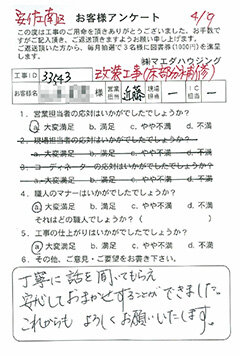 安佐南区 お客様アンケート 4/9
この度は工事のご用命を頂きありがとうございました。お手数で
すがご記入頂き、ご返送頂きますようお願い申し上げます。
ご返送頂いた方から、毎月抽選で3名様に図書券(1000円)を進呈
します。
㈱マエダハウジング
工事ID 33243 改装工事(床部分張替)
お客様名 様 営業担当 近藤 現場担当 ー IC担当 ー
1. 営業担当者の応対はいかがでしたでしょうか?
a.大変満足 b.満足 c.やや不満 d.不満
2. 現場担当者の応対はいかがでしたでしょうか?
a.大変満足 b.満足 c.やや不満 d.不満
3. コーディネーターの応対はいかがでしたでしょうか?
a.大変満足 b.満足 c.やや不満 d.不満
4. 職人のマナーはいかがでしたでしょうか?
a.大変満足 b.満足 c.やや不満 d.不満
それはどの職人でしょうか?( )
5. 工事の仕上がりはいかがでしたでしょうか?
a.大変満足 b.満足 c.やや不満 d.不満
6. その他、ご意見・ご要望をお書き下さい。
丁寧に話を聞いてもらえ
安心しておまかせすることができました。
これからも よろしくお願いいたします。